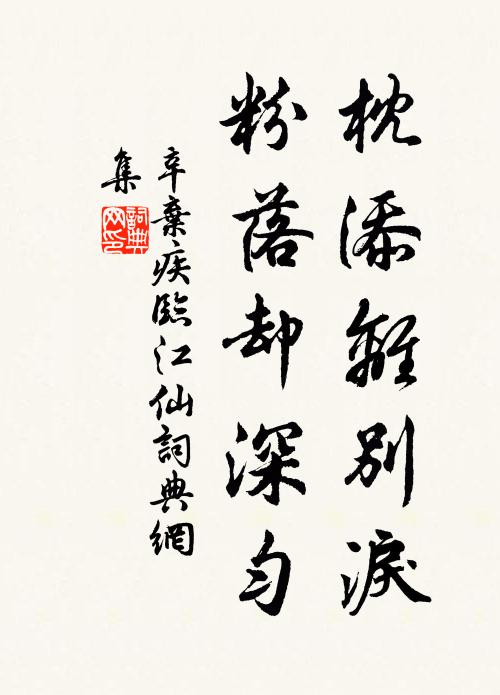 枕添離別淚
粉落却深勻
辛棄疾臨江仙詞典網
集
詞典网印